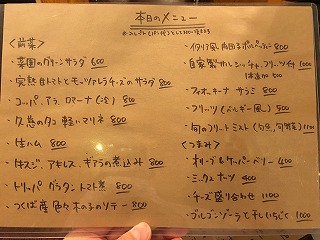 本日のメニュー
<前菜>
・菜園のグリーンサラダ 600
・完熟白トマトとモッツァレラチーズのサラダ 800
・コッパ、ディ、ロマーナ(冷) 800
・久慈のタコ 軽いマリネ 800
・生ハム 800
・牛スジ、アキレス、ギアラの煮込み 800
・トリッパ グラタン トマト煮 800
・つくば産 色々木の子のソテー 800
・イタリア風肉団子 ポルペッティ 800
・自家製サルシッチャ、フリッツ付 1000
・フィオーチナ サラミ 800
・フリッツ(ベルギー風) 500
・旬のフリートミスト 1100
<つまみ>
・オリーブ&ケッパーベリー 400
・ミックスナッツ 400
・チーズ盛り合わせ 1100
・ゴルゴンゾーラと干しいちじく 1000